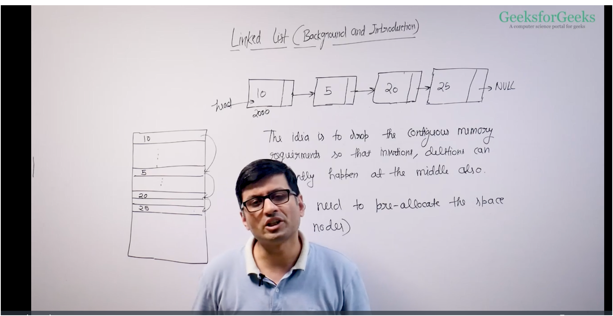 GeeksforGeeks
A computer science portal for geeks
Linked List (Background and Introduction)
head
10
5
20
25
NULL
2000
The idea is to drop the contiguous memory
requirments so that insertions, deletions can
ntly happen at the middle also.
need to pre-allocate the space
nodes)
10
5
20
25